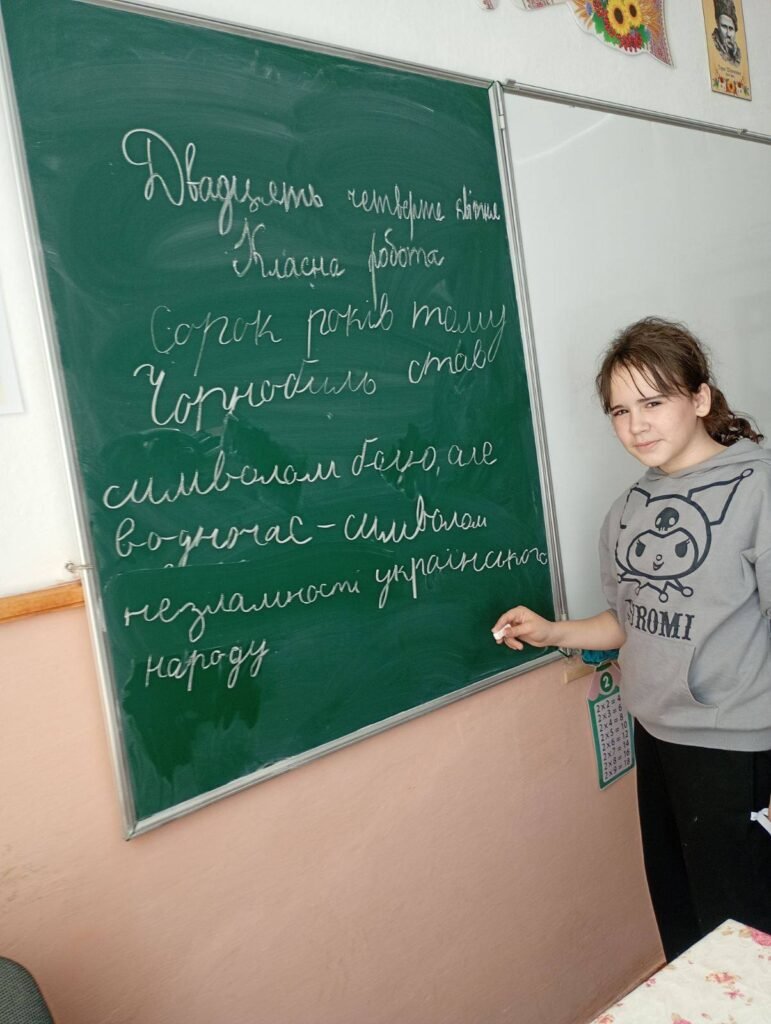 Двадцять четверте квітня
Класна робота
Сорок років тому
Чорнобиль став
символом болю, але
водночас – символом
незламності українського
народу.
УROMI
2
2×2=4
2×3=6
2×4=8
2×5=10
2×6=12
2×7=14
2×8=16
2×9=18